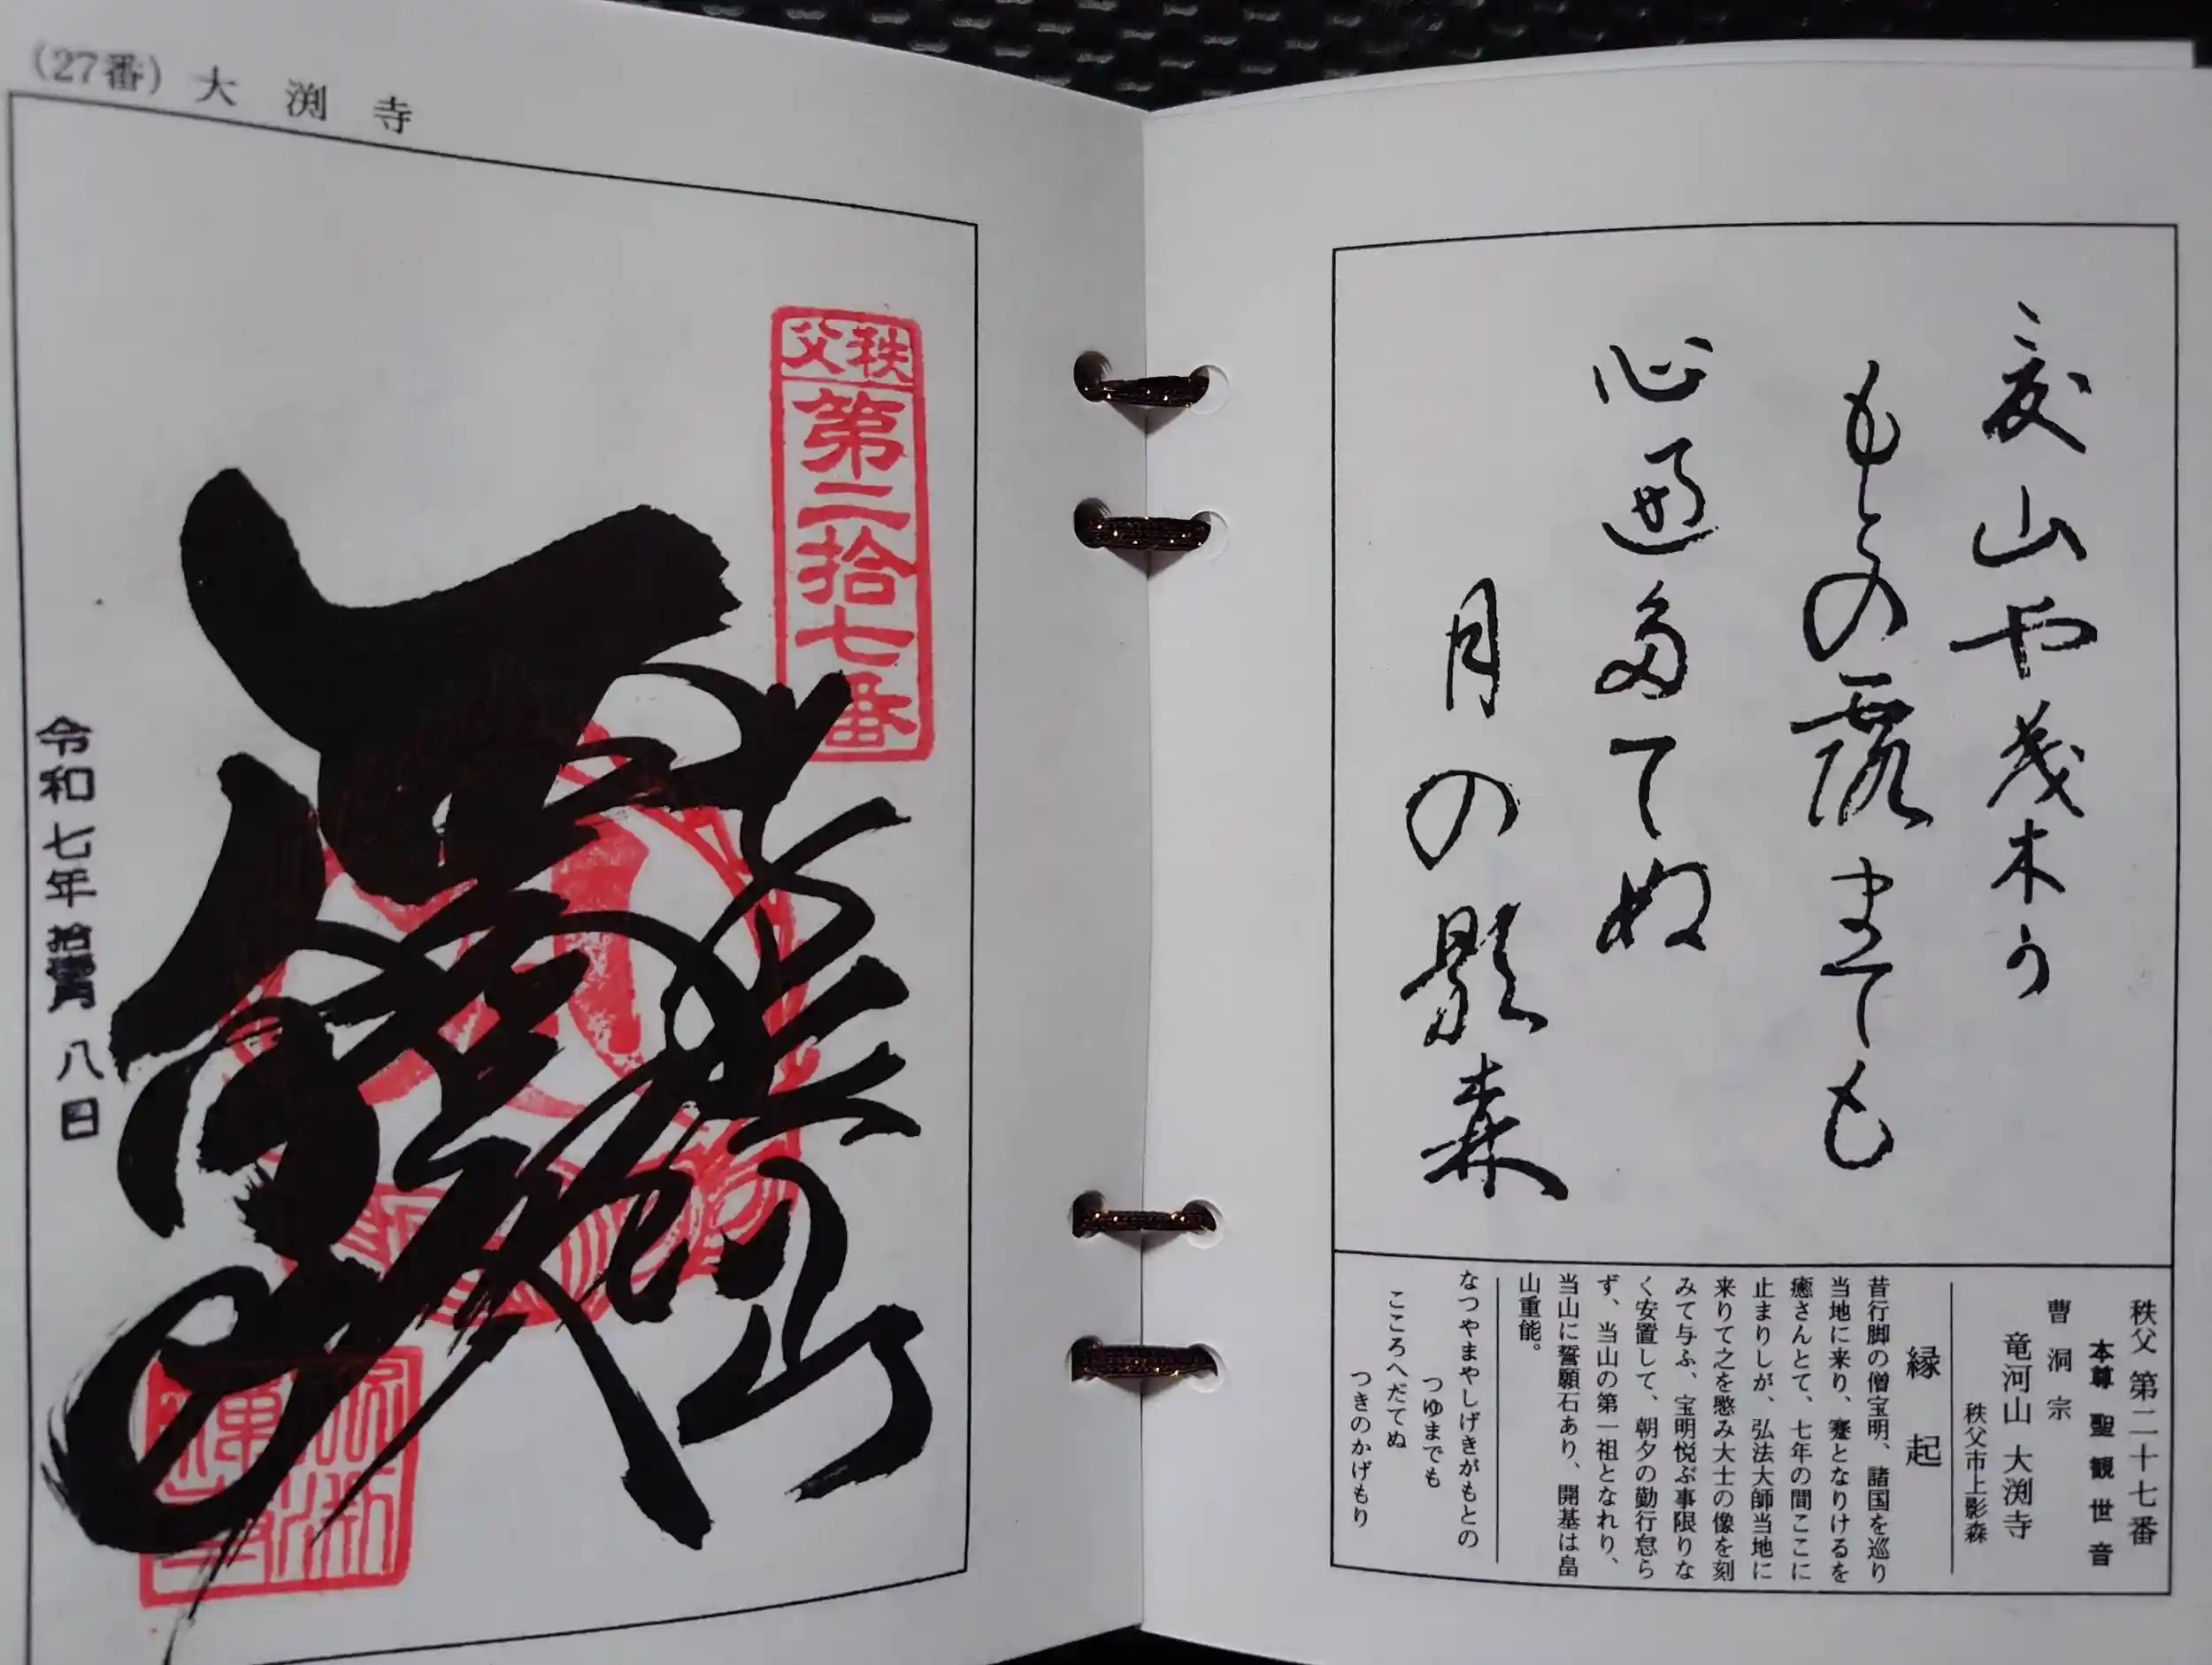 (27番) 大渕寺
秩父
第二拾七番
令和七年拾壹月八日
夏山や茂木う
もとの露までも
心遍多てぬ
月の影森
秩父第二十七番
本尊 聖観世音
曹洞宗
竜河山 大渕寺
秩父市上影森
縁起
昔行脚の僧宝明、諸国を巡り
当地に来り、蹇となりけるを
癒さんとて、七年の間ここに
止まりしが、弘法大師当地に
来りて之を愍み大士の像を刻
みて与ふ、宝明悦ぶ事限りな
く安置して、朝夕の勤行怠ら
ず、当山の第一祖となれり、
当山に誓願石あり、開基は畠
山重能。
なつやまやしげきがもとの
つゆまでも
こころへだてぬ
つきのかげもり